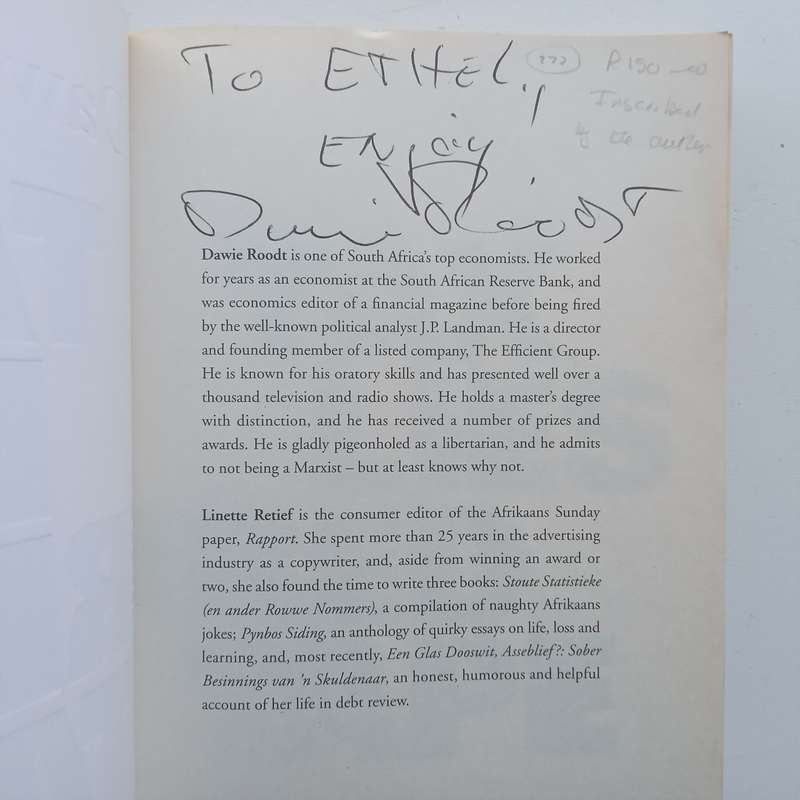 TO ETHEL,
(???) R150-00
Inscribed
by the author
ENJOY
Dawie Roodt
Dawie Roodt is one of South Africa's top economists. He worked
for years as an economist at the South African Reserve Bank, and
was economics editor of a financial magazine before being fired
by the well-known political analyst J.P. Landman. He is a director
and founding member of a listed company, The Efficient Group.
He is known for his oratory skills and has presented well over a
thousand television and radio shows. He holds a master's degree
with distinction, and he has received a number of prizes and
awards. He is gladly pigeonholed as a libertarian, and he admits
to not being a Marxist – but at least knows why not.
Linette Retief is the consumer editor of the Afrikaans Sunday
paper, Rapport. She spent more than 25 years in the advertising
industry as a copywriter, and, aside from winning an award or
two, she also found the time to write three books: Stoute Statistieke
(en ander Rowwe Nommers), a compilation of naughty Afrikaans
jokes; Pynbos Siding, an anthology of quirky essays on life, loss and
learning, and, most recently, Een Glas Dooswit, Asseblief?: Sober
Besinnings van 'n Skuldenaar, an honest, humorous and helpful
account of her life in debt review.